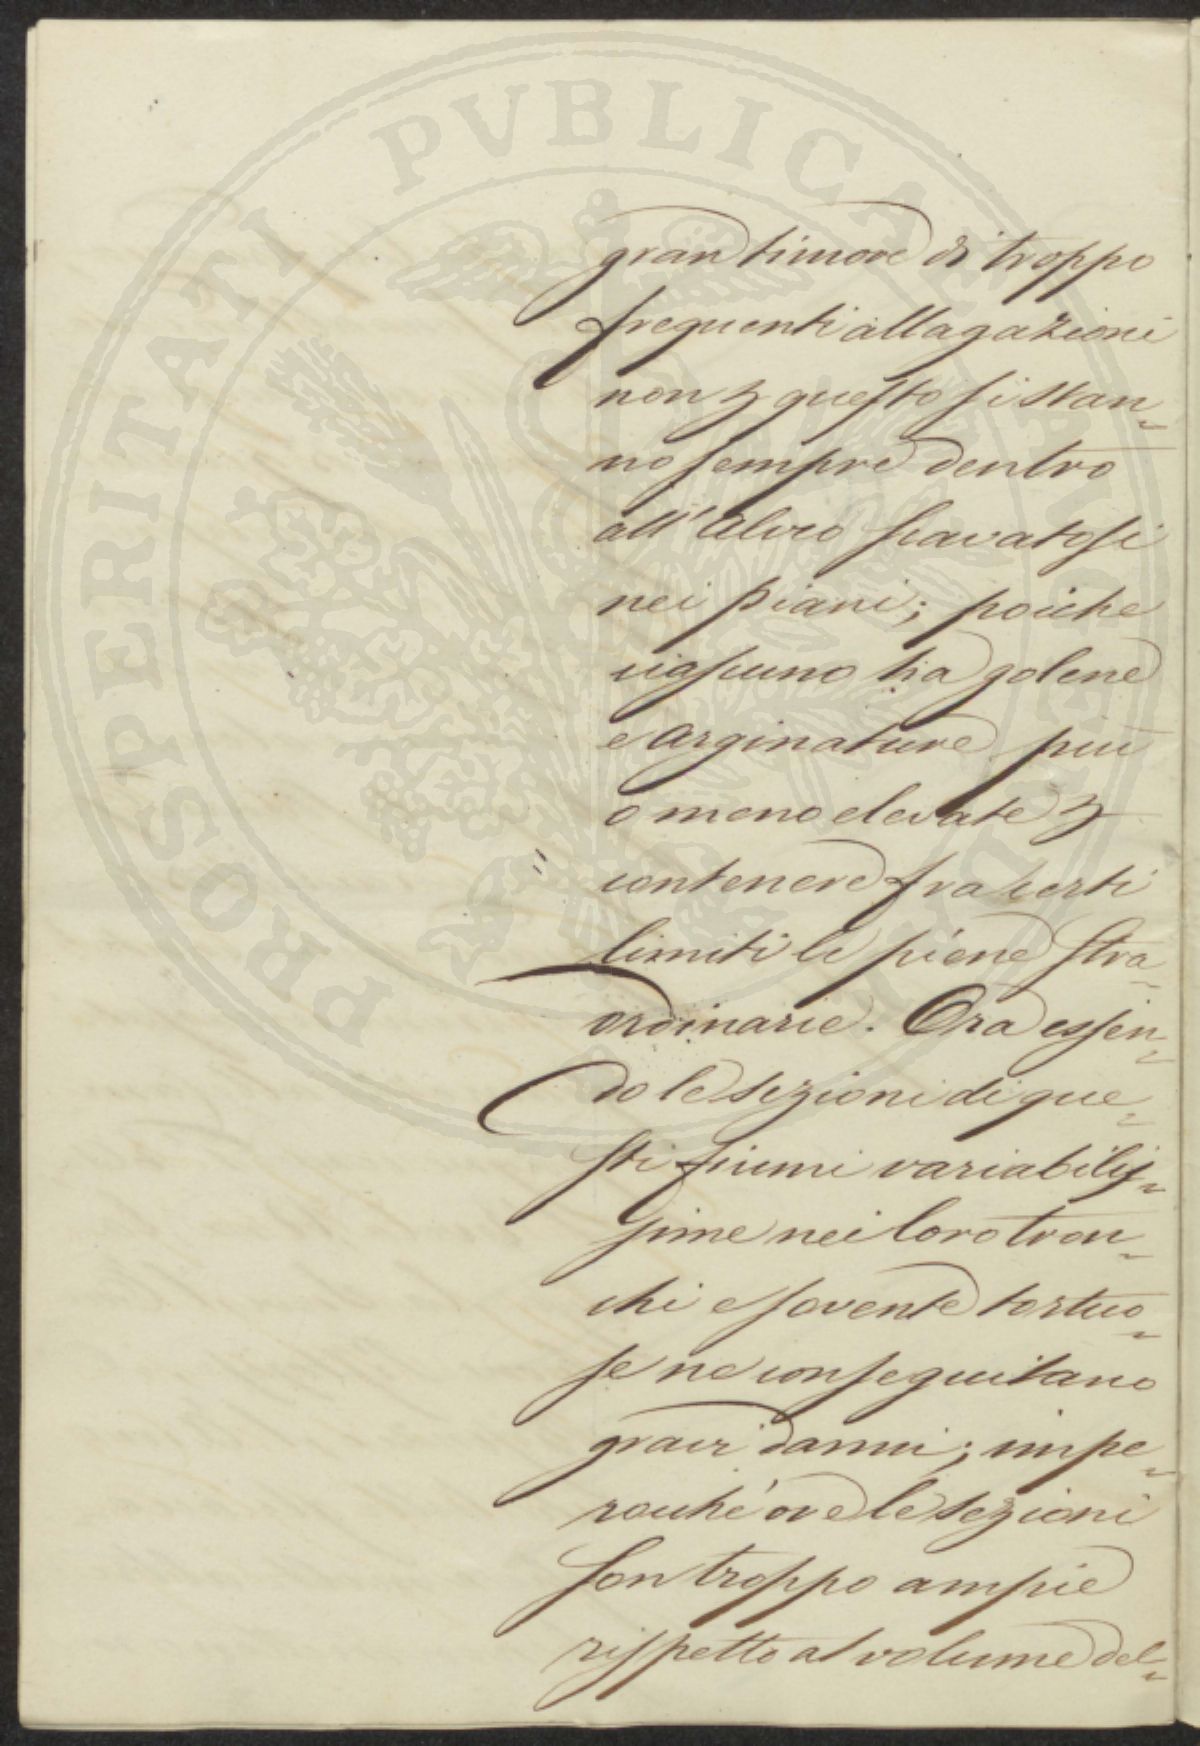 PROSPERITATI PVBLICAE AVGENDAE
gran timore di troppo
frequenti allagazioni
non ꝑ questo si stan-
no sempre dentro
all'alveo scavatosi
nei piani; poiche
ciascuno ha golene
e arginature più
o meno elevate ꝑ
contenere fra certi
limiti le piene stra-
ordinarie. Ora essen-
do le sezioni di que-
sti fiumi variabilis-
sime nei loro tron-
chi e sovente tortuo-
se ne conseguitano
gravi danni; impe-
rocché ove le sezioni
son troppo ampie
rispetto al volume del-